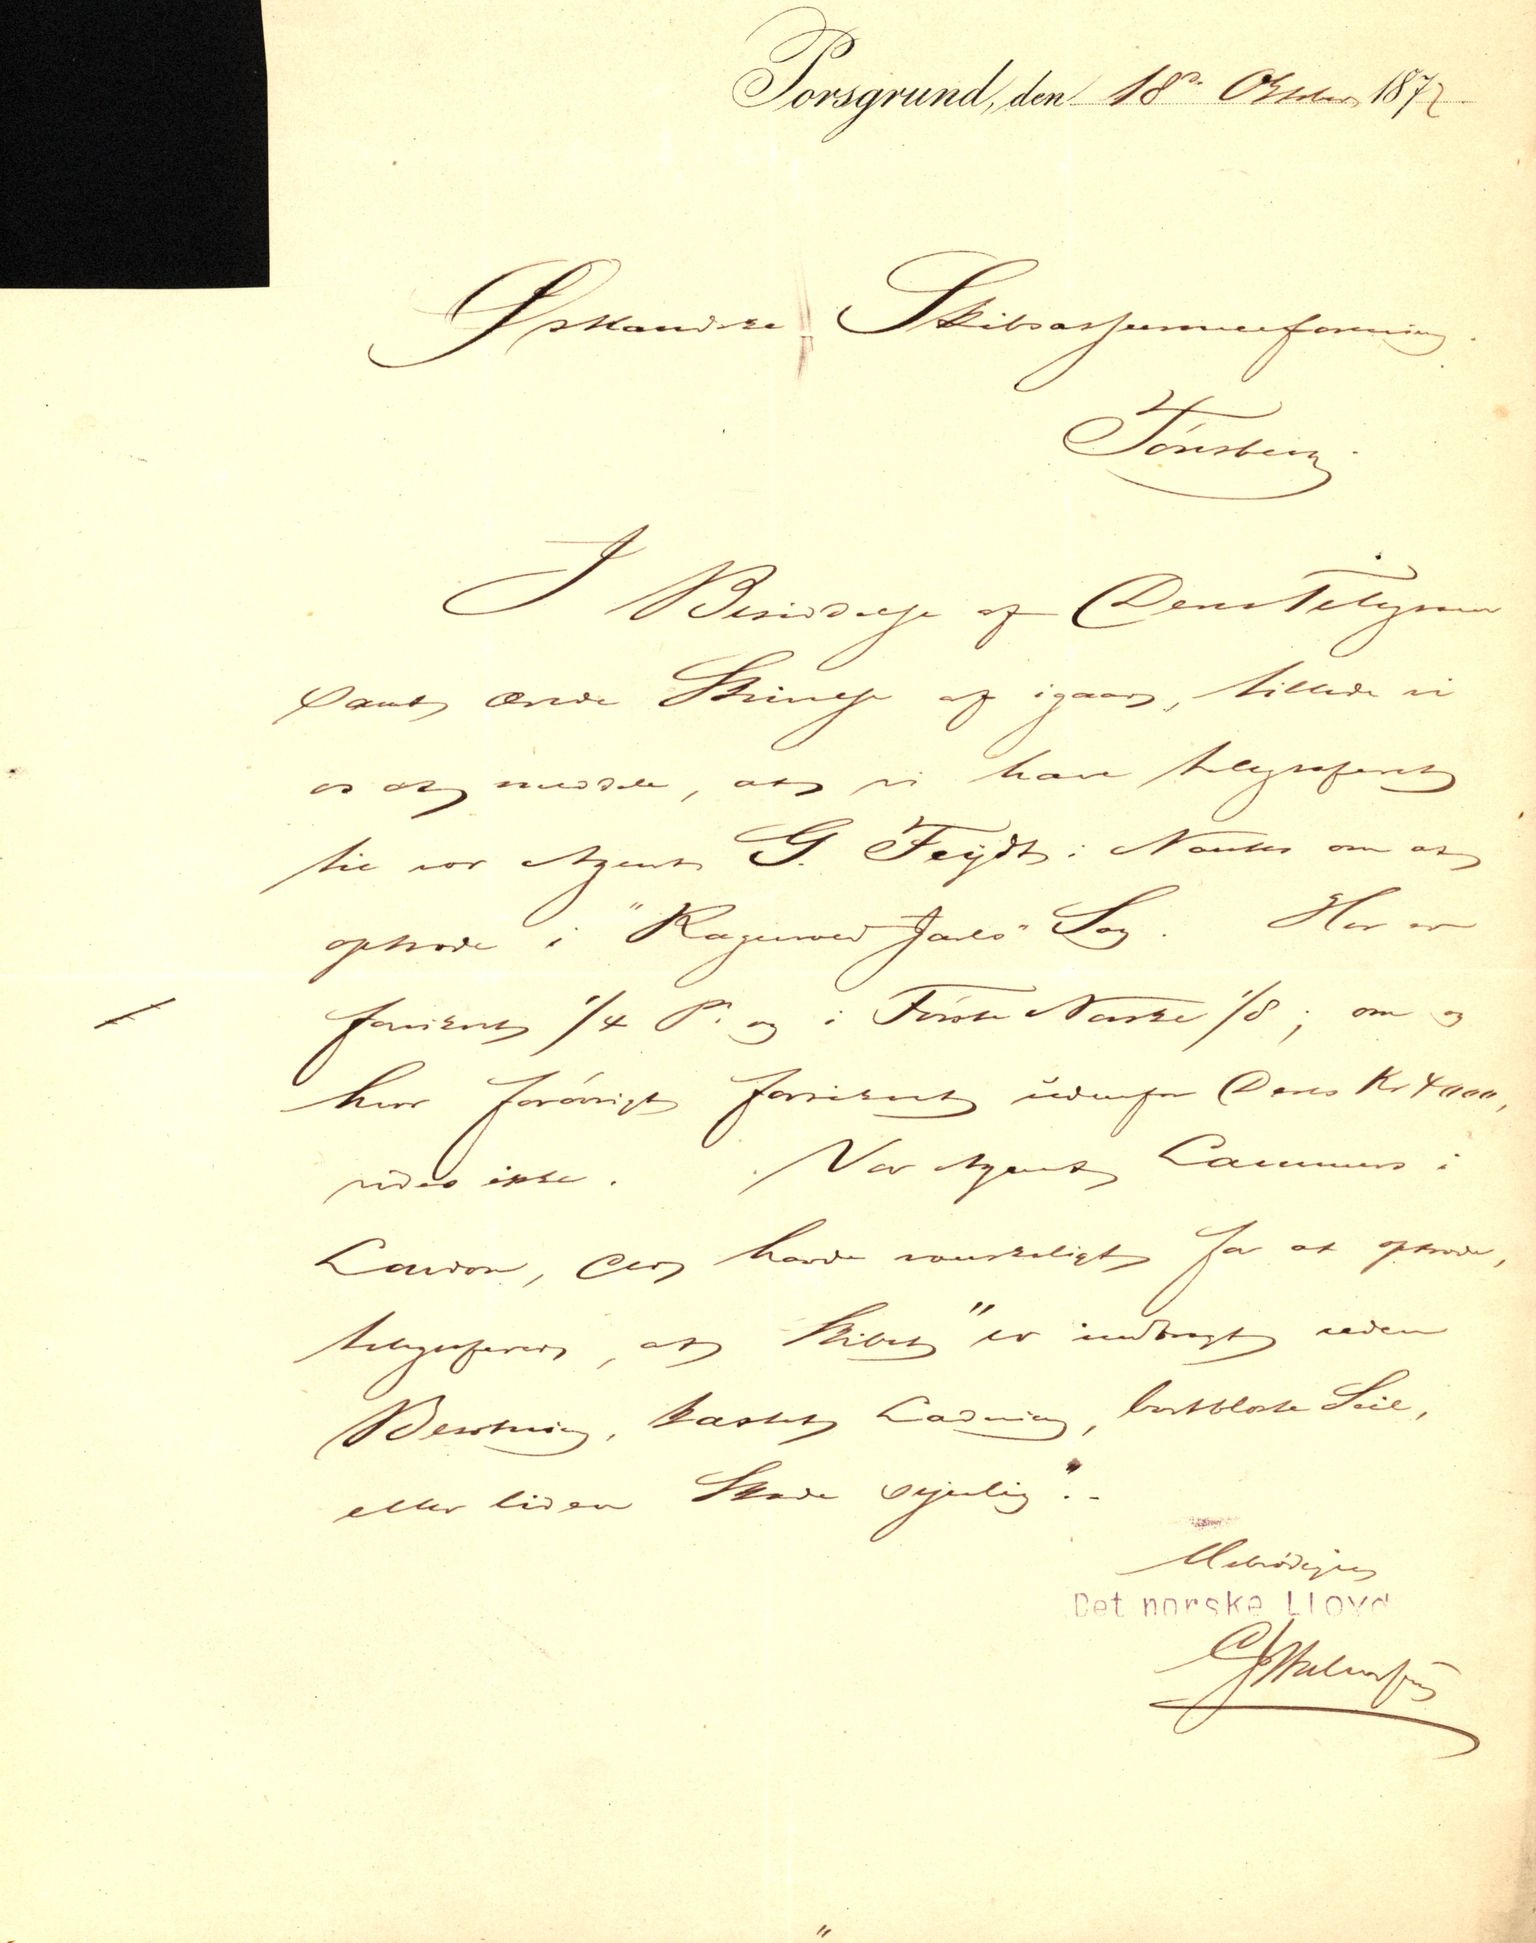 Porsgrund, den 18de Oktober 1877
Ørskandske Skibsassuranceforening
Tönsberg.
I Besiddelse af Deres Telegram
samt ærede Skrivelse af igaar, tillade vi
os at meddele, at vi have telegraferet
til vor Agent G. Feydt i Nantes om at
optræde i "Ragnvald Jarls" Sag. Her er
forsikret 1/4 P. og i Förste Norske 1/8; om og
hvor forövrigt forsikret udenfor Deres Kr 4000,
vides ikke. Vor Agent Lammers i
London, der havde vanskeligt for at optræde,
telegraferer, at Skibet "er indbragt uden
Besætning, kastet Ladning, bortblæste Seil,
eller liden Skade synlig".-
Ærbödigst
Det norske Lloyd